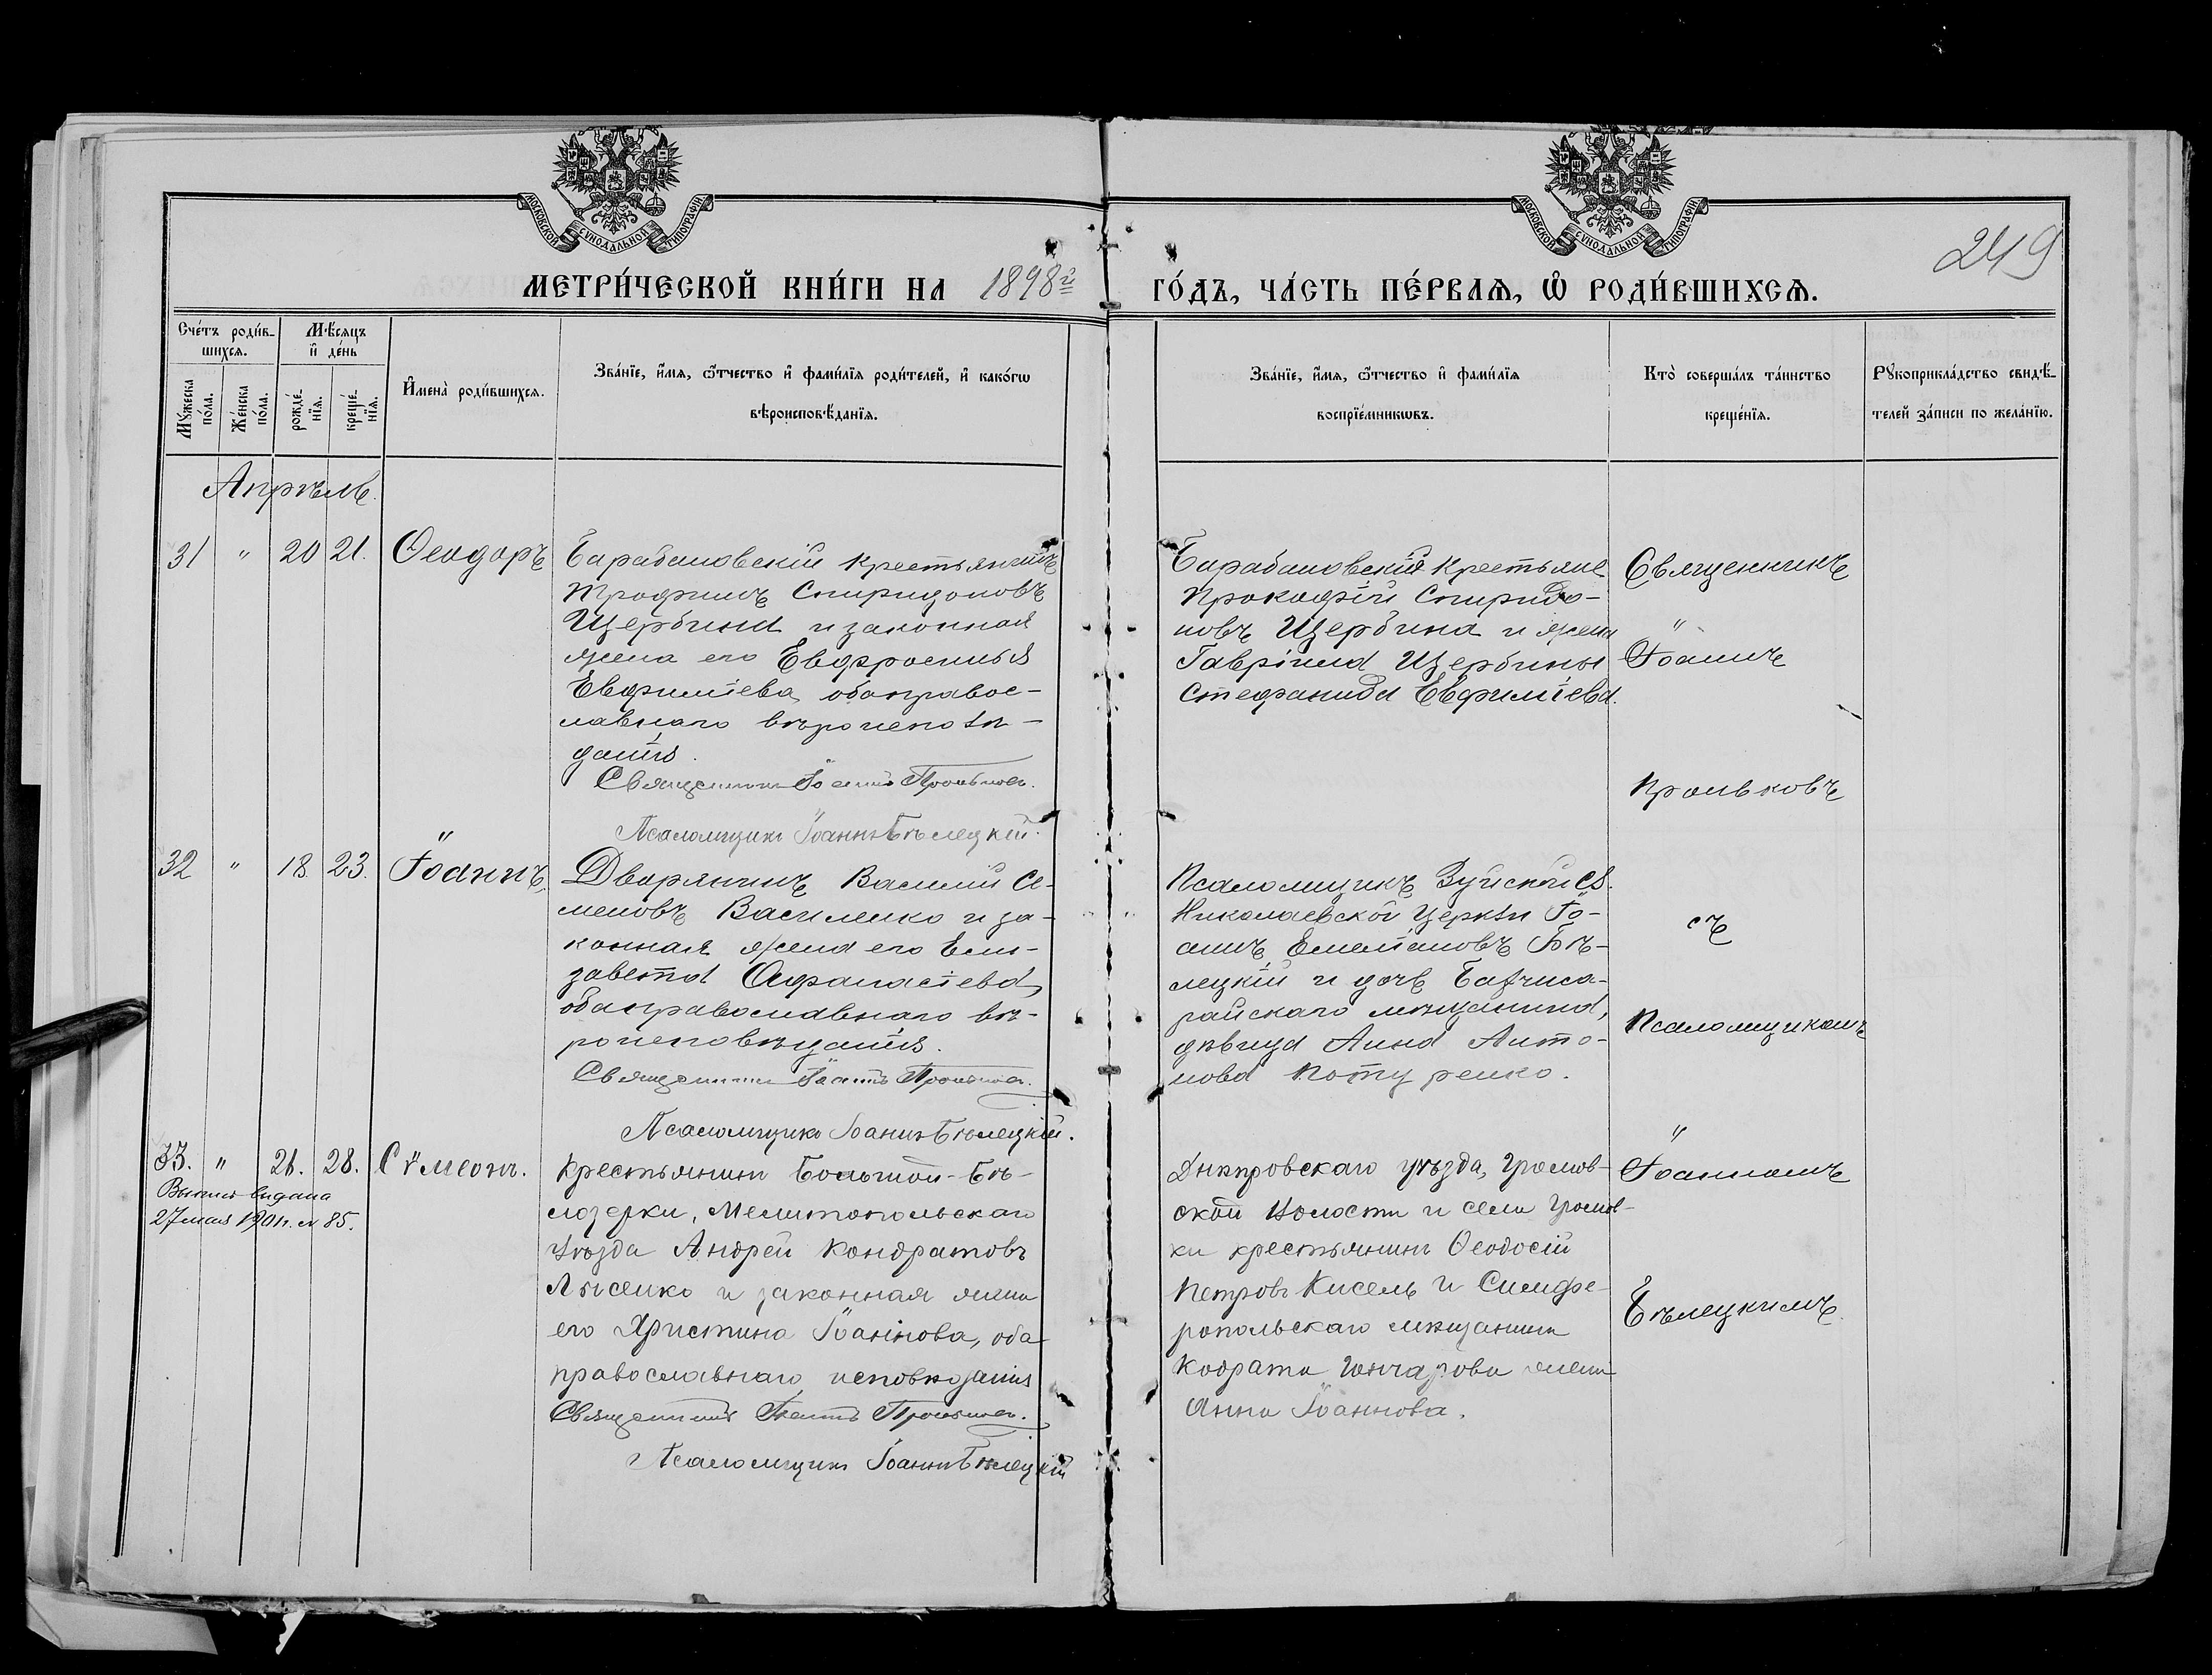 МОСКОВСКОЙ СУНОДАЛЬНОЙ ТИПОГРАФІИ
МОСКОВСКОЙ СУНОДАЛЬНОЙ ТИПОГРАФІИ
249
МЕТРИ́ЧЕСКОЙ КНИ́ГИ НА 1898й ГО́ДЪ, ЧА́СТЬ ПЕ́РВАѦ, Ѡ РОДИ́ВШИХСѦ.
Сче́тъ роди́в-
шихсѧ.
Мꙋжеска по́ла.
Же́нска по́ла.
Мѣ́сѧцъ
и҆ де́нь
рожде́-
нїѧ.
креще́-
нїѧ.
И҆мена̀ роди́вшихсѧ.
Зва́нїе, и҆́мѧ, ѻ҆́тчество и҆ фами́лїѧ роди́телей, и҆ како́гѡ
вѣроисповѣ́данїѧ.
Зва́нїе, и҆́мѧ, ѻ҆́тчество и҆ фами́лїѧ
воспрїе́мникѡвъ.
Кто̀ соверша́лъ та́инство
креще́нїѧ.
Рꙋкоприкла́дство свидѣ́-
телей за́писи по жела́нїю.
Апрѣль.
31 " 20 21. Ѳеодоръ
Барабановскій крестьянинъ
Трофимъ Спиридоновъ
Щербина и законная
жена его Евфросинья
Евфиміева, оба право-
славнаго вѣроисповѣ-
данія.
Священникъ Іоаннъ Проньковъ.
Псаломщикъ Іоаннъ Бѣлецкій.
Барабановскій крестьяне
Прокофій Спиридо-
новъ Щербина и жена
Гавріила Щербины
Стефанида Евфиміева.
Священникъ
"
Іоаннъ
Проньковъ
32 " 18. 23. Іоаннъ.
Дворянинъ Василій Се-
меновъ Василенко и за-
конная жена его Ели-
завета Афанасіева,
оба православнаго вѣ-
роисповѣданія.
Священникъ Іоаннъ Проньковъ.
Псаломщикъ Іоаннъ Бѣлецкій.
Псаломщикъ Зуйской Св.
Николаевской Церкви Іо-
аннъ Емеліановъ Бѣ-
лецкій и дочь Бахчиса-
райскаго мѣщанина,
дѣвица Анна Анто-
нова Потуренко.
съ
Псаломщикомъ
33. " 21. 28. Сѵмеонъ.
Выпись выдана
27 мая 1901 г. № 85.
Крестьянинъ Большой-Бѣ-
лозерки, Мелитопольскаго
Уѣзда Андрей Кондратовъ
Лысенко и законная жена
его Христина Іоаннова, оба
православнаго исповѣданія
Священникъ Іоаннъ Проньковъ.
Псаломщикъ Іоаннъ Бѣлецкій
Днѣпровскаго уѣзда, Громов-
ской Волости и села Громов-
ки крестьянинъ Ѳеодосій
Петровъ Кисель и Симфе-
ропольскаго мѣщанина
Кодрата Гончарова жена
Анна Іоаннова.
"
Іоанномъ
Бѣлецкимъ.